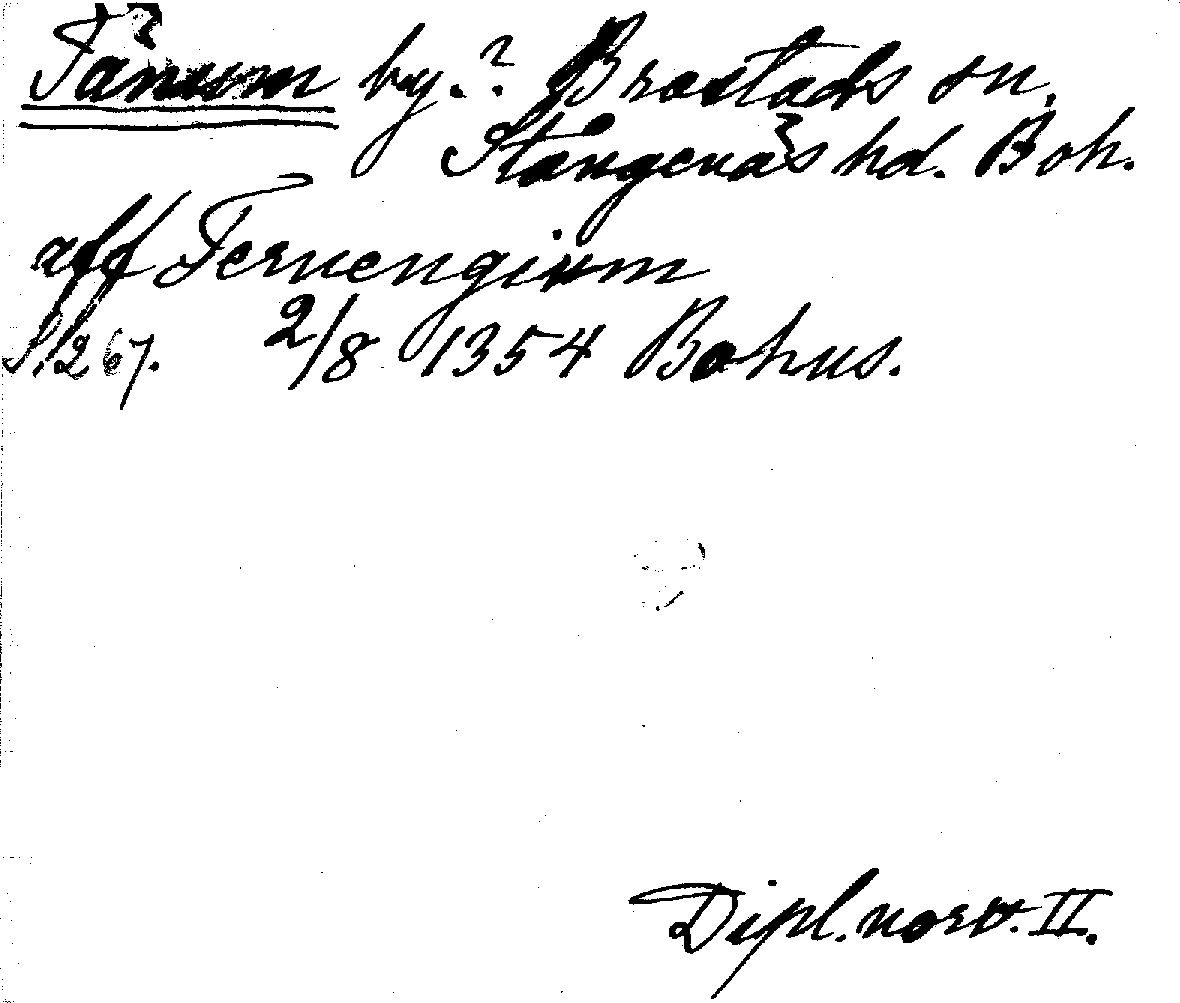 Tånum by.? Brastads sn.
Stångenäs hd. Boh.
aff Ternengium
S. 267. 2/8 1354 Bohus.
Dipl. norv. II.